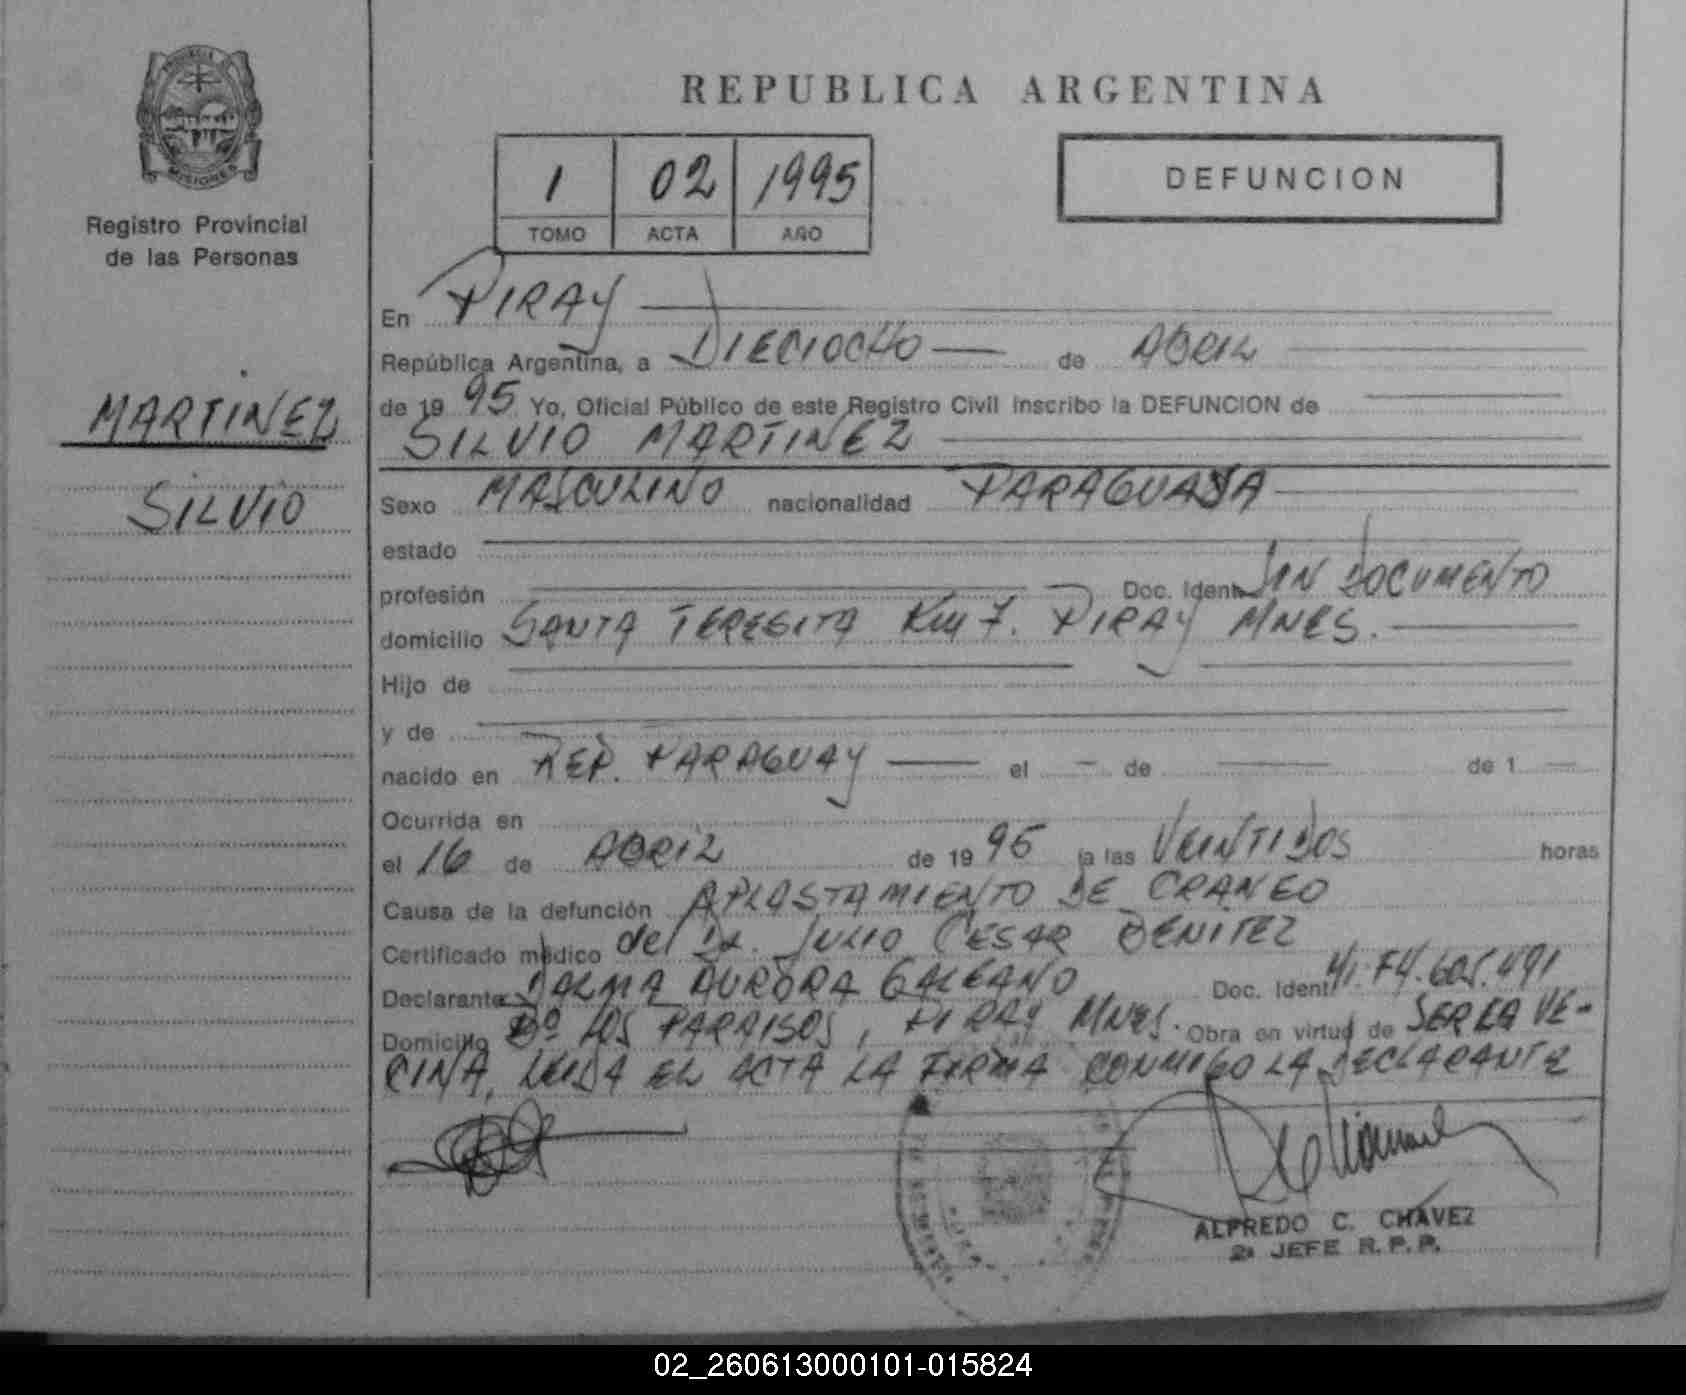 PROVINCIA
MISIONES
Registro Provincial
de las Personas
MARTINEZ
SILVIO
REPUBLICA ARGENTINA
1 02 1995
TOMO ACTA AÑO
DEFUNCION
En PIRAY
República Argentina, a DIECIOCHO de ABRIL
de 19 95 Yo, Oficial Público de este Registro Civil inscribo la DEFUNCION de
SILVIO MARTINEZ
Sexo MASCULINO nacionalidad PARAGUAYA
estado
profesión Doc. Ident. SIN DOCUMENTO
domicilio SANTA TERESITA Km 7. PIRAY MNES.
Hijo de
y de
nacido en REP. PARAGUAY el de de 1
Ocurrida en
el 16 de ABRIL de 19 95 a las VEINTIDOS horas
Causa de la defunción APLASTAMIENTO DE CRANEO
Certificado médico del Dr. JULIO CESAR BENITEZ
Declarante DALMA AURORA GALEANO Doc. Ident. 74.605.491
Domicilio Bº LOS PARAISOS, PIRAY MNES. Obra en virtud de SER LA VE-
CINA, LEIDA EL ACTA LA FIRMA CONMIGO LA DECLARANTE
ALFREDO C. CHAVEZ
2º JEFE R.P.P.
02_260613000101-015824